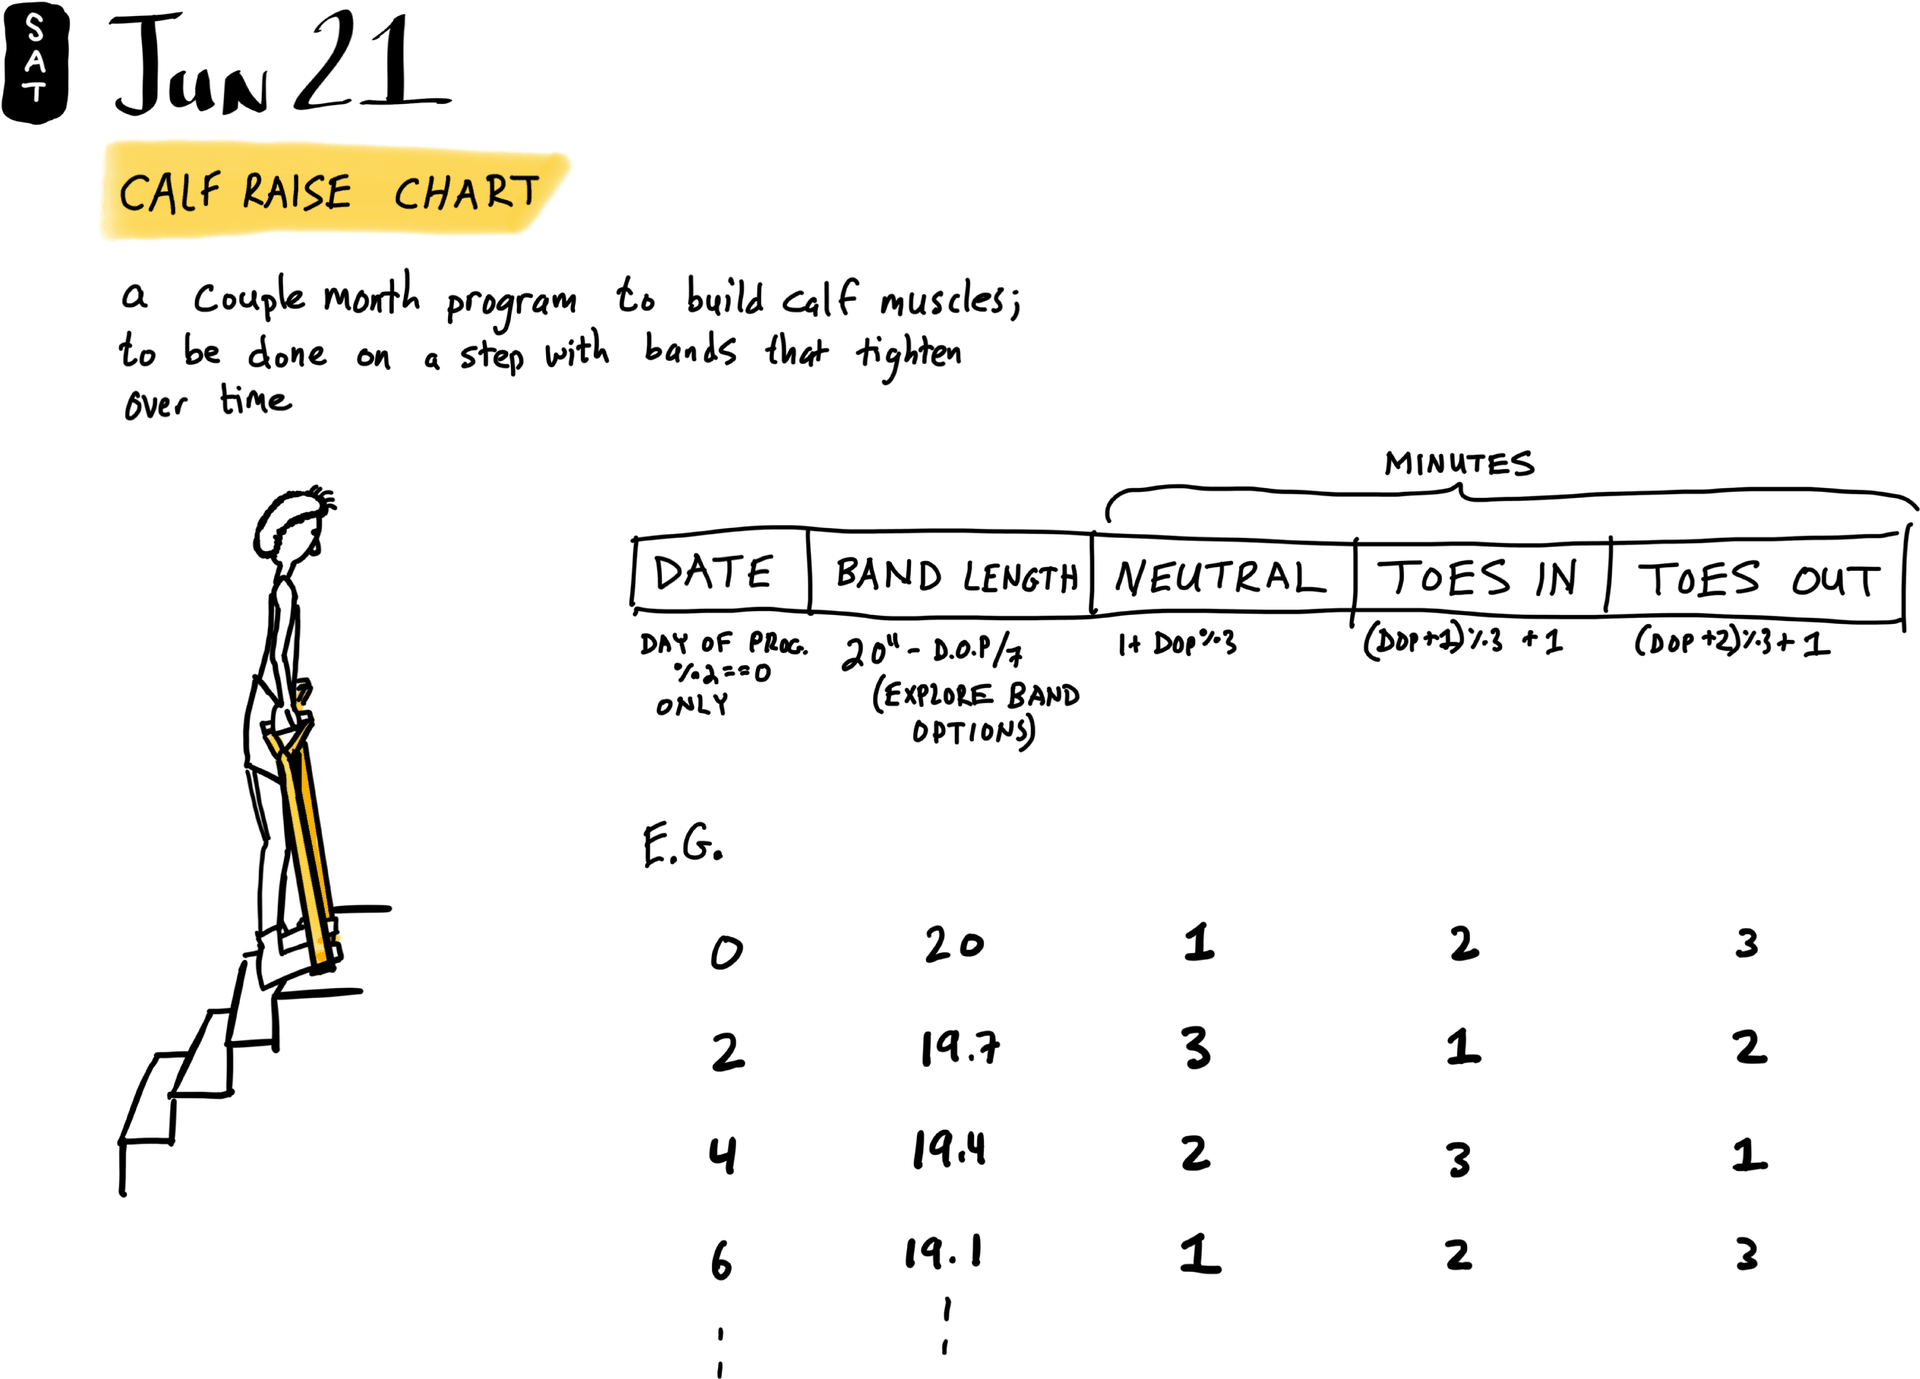 SAT
Jun 21
CALF RAISE CHART
a couple month program to build calf muscles;
to be done on a step with bands that tighten
over time
MINUTES
DATE BAND LENGTH NEUTRAL TOES IN TOES OUT
DAY OF PROG. 20" - D.O.P/7 1+ DOP%3 (DOP+1)%3 +1 (DOP+2)%3+1
%2==0 (EXPLORE BAND
ONLY OPTIONS)
E.G.
0 20 1 2 3
2 19.7 3 1 2
4 19.4 2 3 1
6 19.1 1 2 3